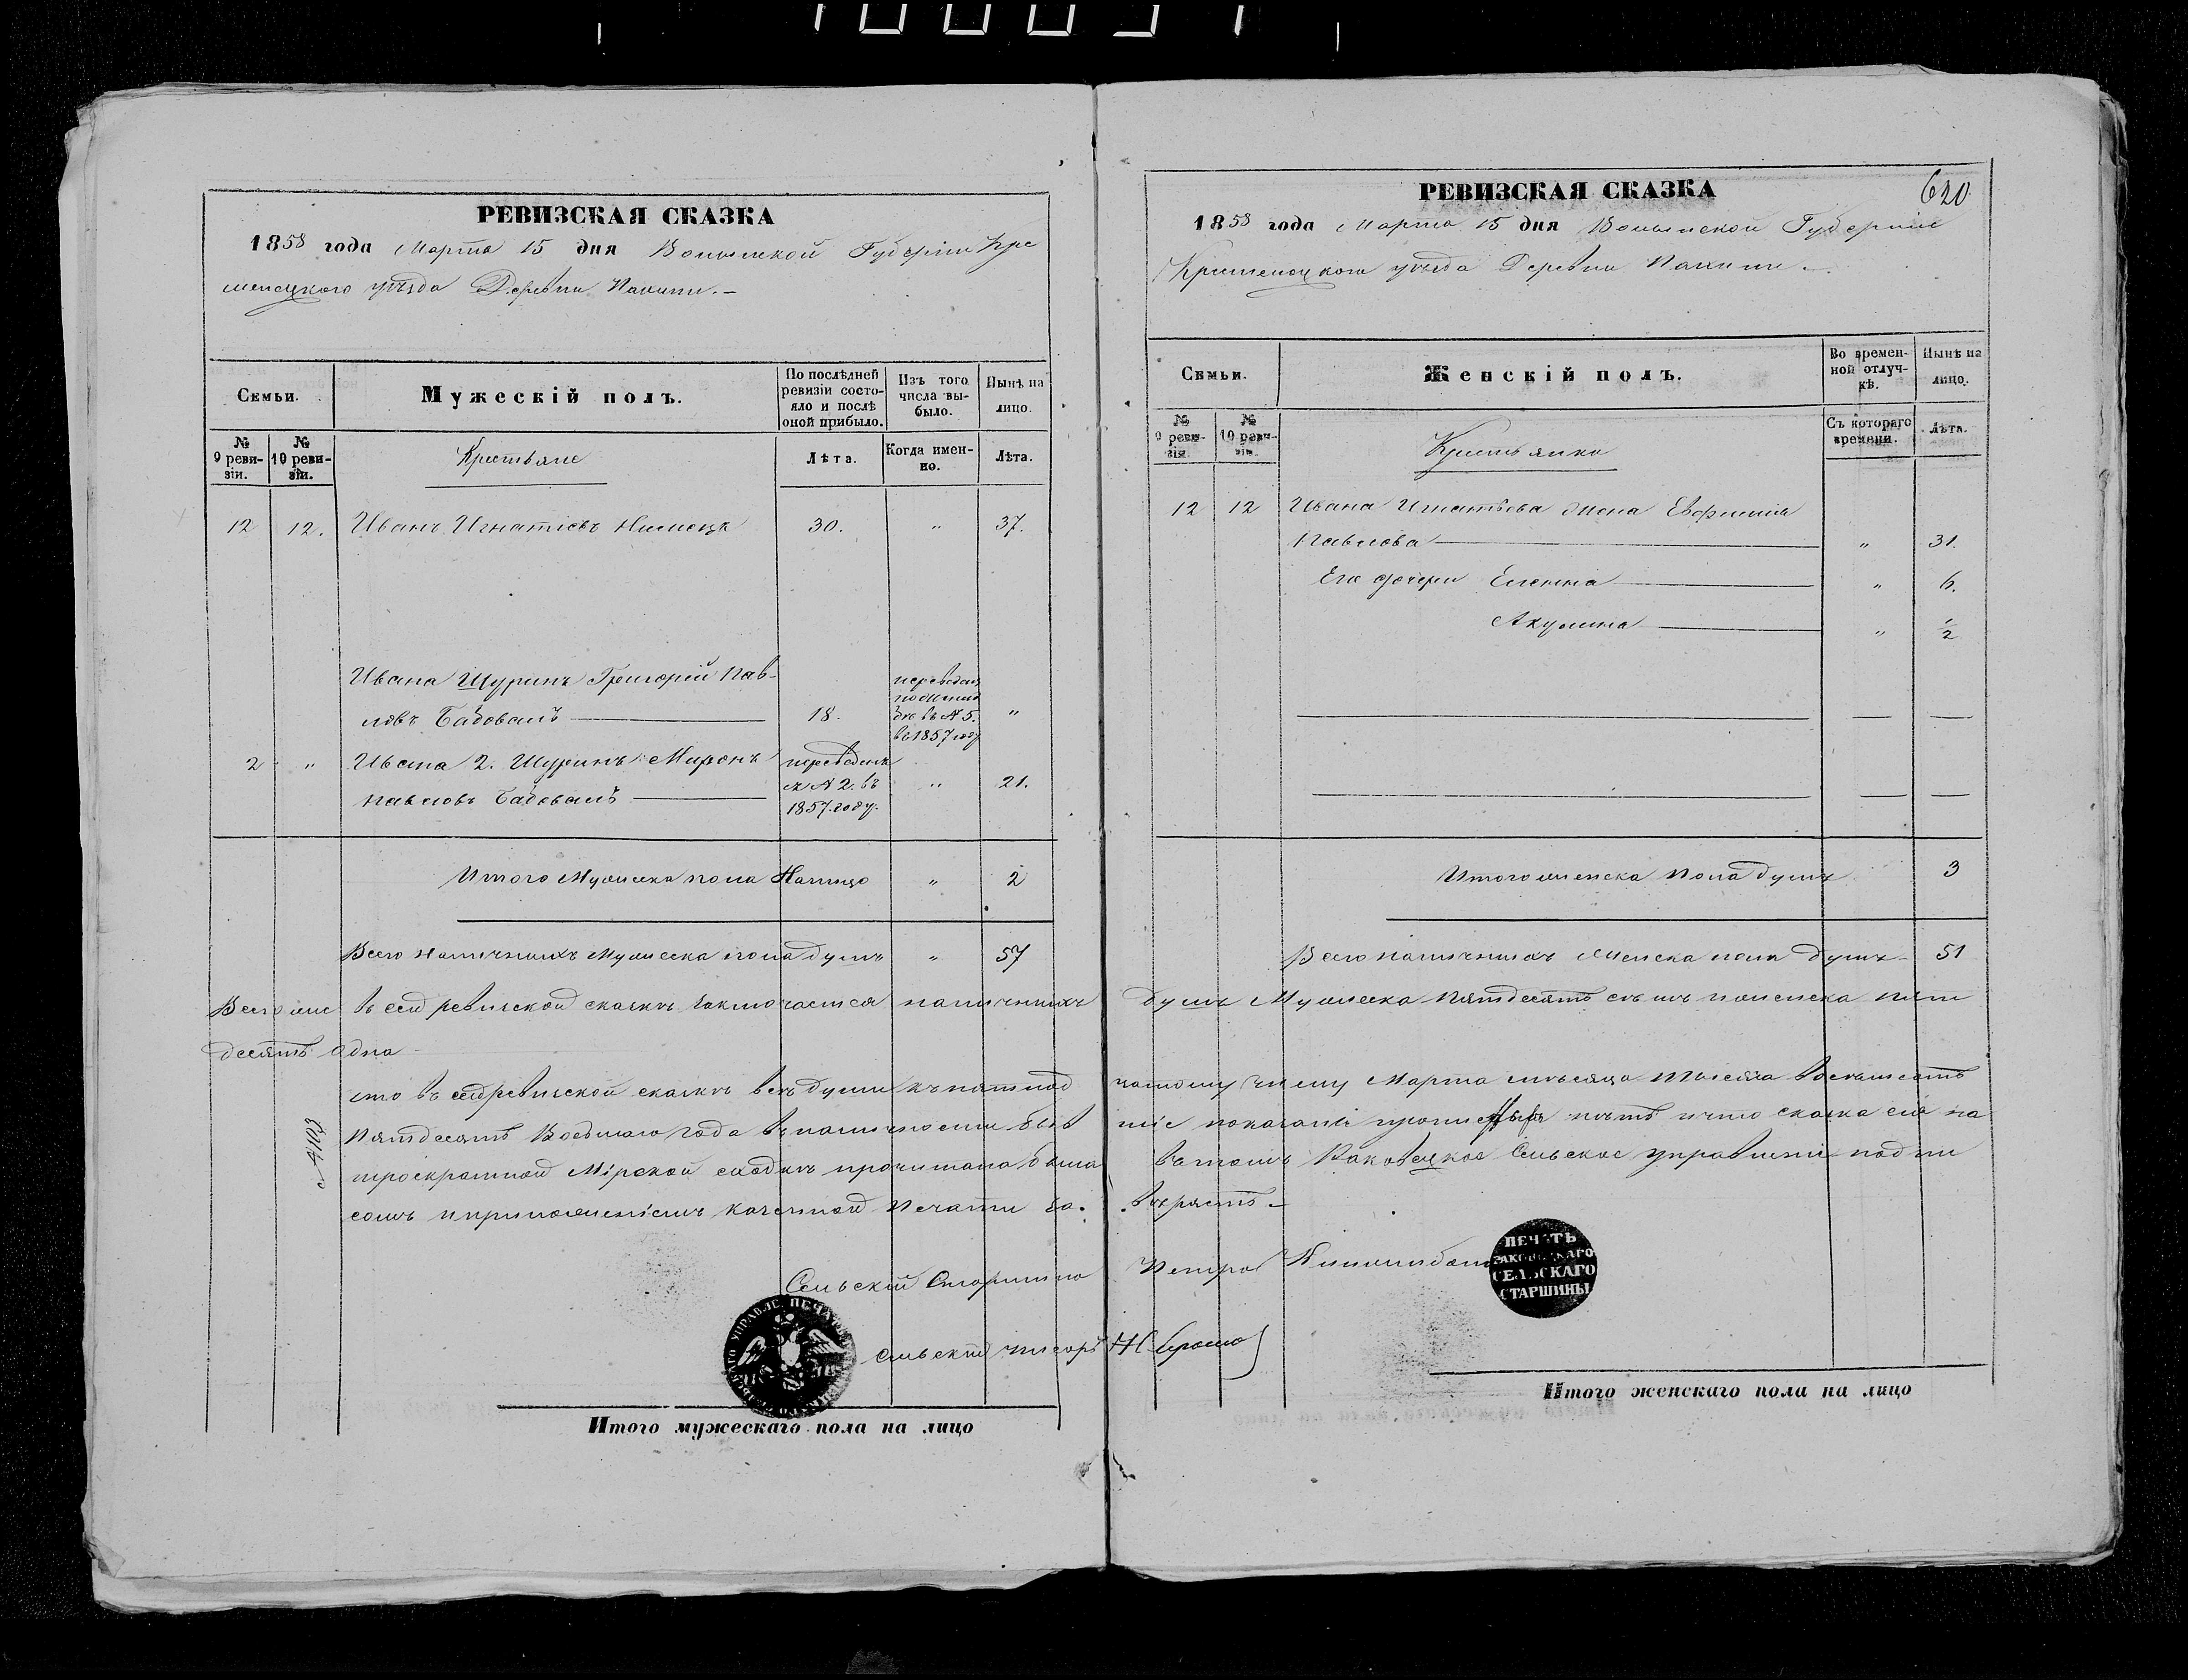 РЕВИЗСКАЯ СКАЗКА
1858 года Марта 15 дня Волынской Губерніи Кре
менецкого уѣзда Деревни
Семьи.
Мужескій полъ.
По послѣдней ревизіи состояло и послѣ оной прибыло.
Изъ того числа выбыло.
Нынѣ на лицо.
№ 9 ревизіи.
№ 10 ревизіи.
Крестьяне
Лѣта.
Когда именно.
Лѣта.
12 12. Иванъ Игнатіевъ 30. " 37.
Ивана Щуринъ Григорій Пав-
ловъ 18. "
переведенъ
въ № 5.
в 1857 году
2 " Ивана 2. Щуринъ Миронъ
Павловъ " 21.
переведенъ
съ № 2. въ
1857. году.
Итого Мужеска пола Налицо " 2
Всего наличныхъ Мужеска пола душъ " 57
Всего же въ сей ревизской сказкѣ заключается наличныхъ
десятъ одна
что въ сей ревизской сказкѣ всѣ души къ пятнад
Пятдесятъ Восьмаго года въ наличности
троекратной Мірской сходкѣ прочитана была
сомъ и приложеніемъ казенной Печати за.
Сельскій Старшина
Сельскій писарь
Итого мужескаго пола на лицо
РЕВИЗСКАЯ СКАЗКА
620
1858 года Марта 15 дня Волынской Губерніи
Кременецкого уѣзда Деревни
Семьи.
Женскій полъ.
Во временной отлучкѣ.
Нынѣ на лицо.
№ 9 ревизіи.
№ 10 ревизіи.
Крестьянки
Съ котораго времени.
Лѣта.
12 12 Ивана Игнатьева жена Евфимія
Павлова " 31.
Его дочери Еленна " 6.
Акулина " 1/2
Итого женска Пола душъ 3
Всего наличныхъ Женска пола душъ 51
душъ Мужеска Пятдесятъ семъ и женска пят
натому числу Марта мѣсяца тысяча восемьсотъ
ніе показаній нѣтъ и что сказка сія на
въ томъ Сельское управленіе подпи
вѣряетъ
Петро
ПЕЧАТЬ
СЕЛЬСКАГО
СТАРШИНЫ
Итого женскаго пола на лицо